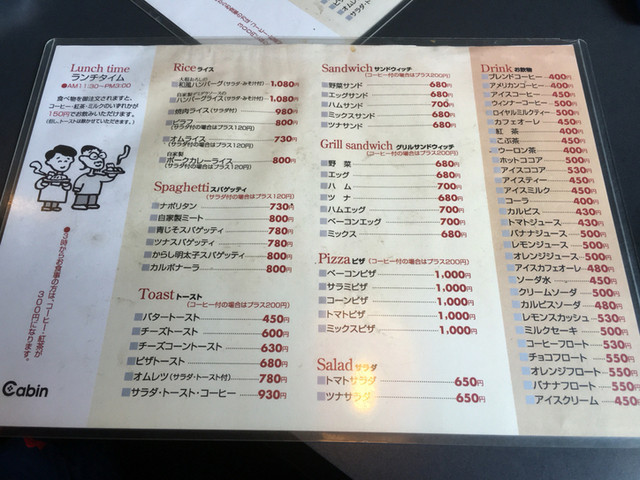 Lunch time
ランチタイム
●AM11:30~PM3:00
食べ物を御注文されますと、
コーヒー・紅茶・ミルクのいずれかが
150円でお飲みいただけます。
(但し、トーストは除かせていただきます。)
●3時からお食事の方は、コーヒー・紅茶が
300円になります。
Cabin
Rice ライス
大根おろしの
和風ハンバーグ(サラダ・みそ汁付) 1,080円
ハンバーグライス(サラダ・みそ汁付) 1,080円
焼肉ライス 980円
(サラダ付の場合はプラス120円)
ピラフ 800円
(サラダ付の場合はプラス120円)
オムライス 730円
(サラダ付の場合はプラス120円)
自家製
ポークカレーライス 800円
(サラダ付の場合はプラス120円)
Spaghetti スパゲッティ
(サラダ付の場合はプラス120円)
ナポリタン 730円
自家製ミート 800円
青じそスパゲッティ 780円
ツナスパゲッティ 780円
からし明太子スパゲッティ 800円
カルボナーラ 800円
Toast トースト
(コーヒー付の場合はプラス200円)
バタートースト 450円
チーズトースト 600円
チーズコーントースト 630円
ピザトースト 680円
オムレツ(サラダ・トースト付) 780円
サラダ・トースト・コーヒー 930円
Sandwich サンドウィッチ
(コーヒー付の場合はプラス200円)
野菜サンド 680円
エッグサンド 680円
ハムサンド 700円
ミックスサンド 680円
ツナサンド 680円
Grill sandwich グリルサンドウィッチ
(コーヒー付の場合はプラス200円)
野菜 680円
エッグ 680円
ハム 700円
ツナ 680円
ハムエッグ 700円
ベーコンエッグ 700円
ミックス 680円
Pizza ピザ
(コーヒー付の場合はプラス200円)
ベーコンピザ 1,000円
サラミピザ 1,000円
コーンピザ 1,000円
トマトピザ 1,000円
ミックスピザ 1,000円
Salad サラダ
トマトサラダ 650円
ツナサラダ 650円
Drink お飲物
ブレンドコーヒー 400円
アメリカンコーヒー 400円
アイスコーヒー 450円
ウィンナーコーヒー 500円
ロイヤルミルクティー 500円
カフェオーレ 450円
紅茶 400円
こぶ茶 450円
ウーロン茶 400円
ホットココア 500円
アイスココア 530円
アイスティー 450円
アイスミルク 450円
コーラ 400円
カルピス 430円
トマトジュース 430円
バナナジュース 500円
レモンジュース 500円
オレンジジュース 500円
アイスカフェオーレ 480円
ソーダ水 450円
クリームソーダ 500円
カルピスソーダ 480円
レモンスカッシュ 530円
ミルクセーキ 500円
コーヒーフロート 530円
チョコフロート 550円
オレンジフロート 550円
バナナフロート 550円
アイスクリーム 450円